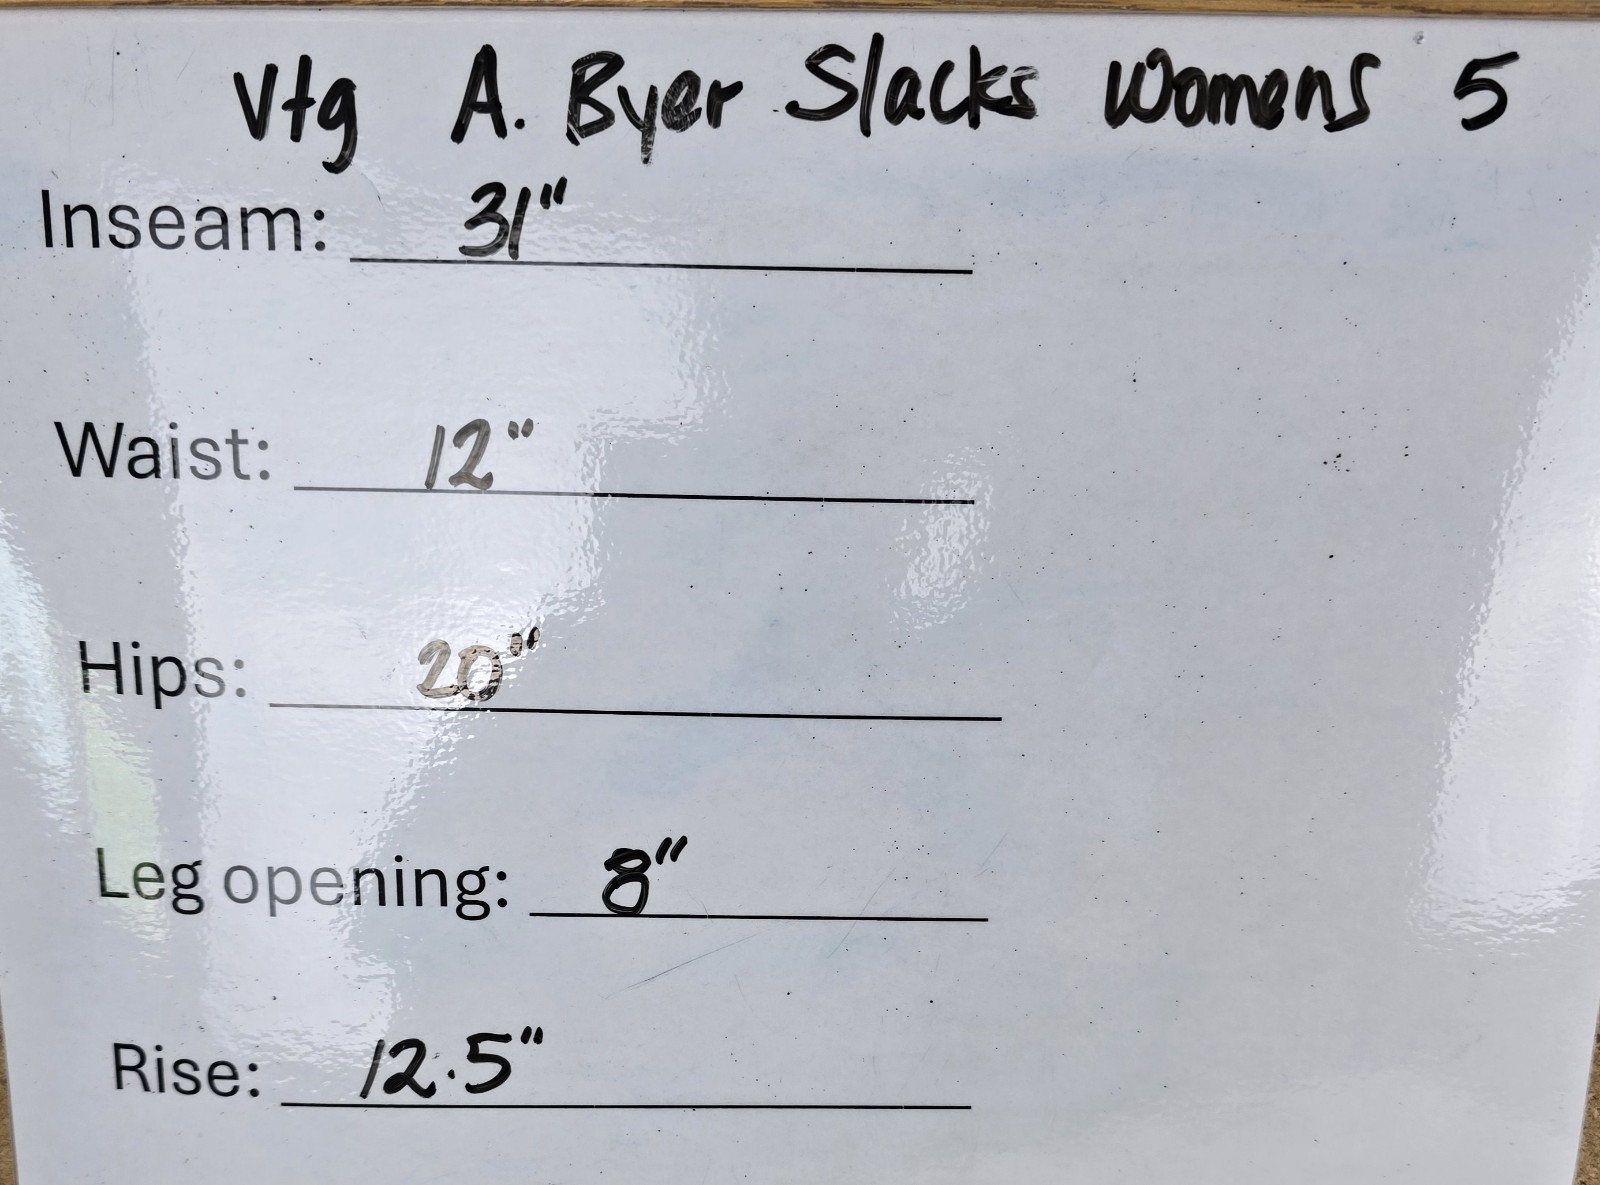 Vtg A. Byer Slacks Womens 5
Inseam: 31"
Waist: 12"
Hips: 20"
Leg opening: 8"
Rise: 12.5"